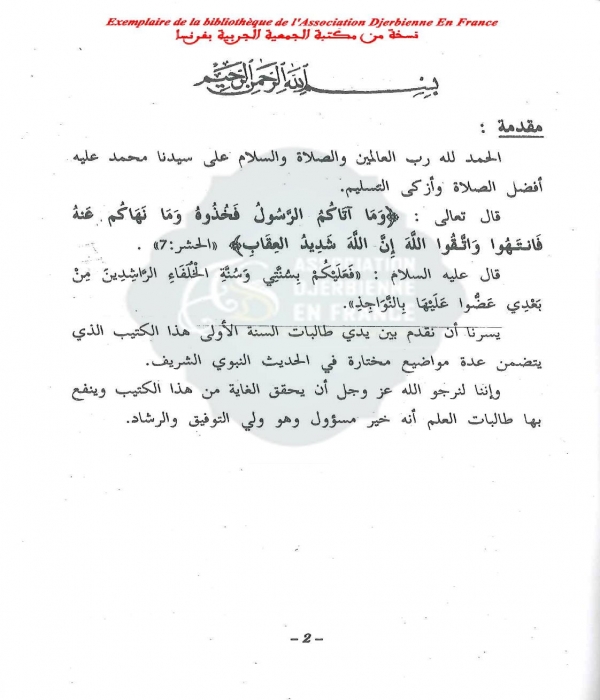 Exemplaire de la bibliothèque de l'Association Djerbienne En France
نسخة من مكتبة الجمعية الجربية بفرنسا
بسم الله الرحمن الرحيم
مقدمة :
الحمد لله رب العالمين والصلاة والسلام على سيدنا محمد عليه
أفضل الصلاة وأزكى التسليم.
قال تعالى : ﴿وَمَا آتَاكُمُ الرَّسُولُ فَخُذُوهُ وَمَا نَهَاكُم عَنهُ
فَانتَهُوا وَاتَّقُوا اللَّهَ إِنَّ اللَّهَ شَدِيدُ العِقَابِ﴾ «الحشر:7» .
قال عليه السلام : «فَعَلَيْكُمْ بِسُنَّتِي وَسُنَّةِ الْخُلَفَاءِ الرَّاشِدِينَ مِنْ
بَعْدِي عَضُّوا عَلَيْهَا بِالنَّوَاجِذِ».
يسرنا أن نقدم بين يدي طالبات السنة الأولى هذا الكتيب الذي
يتضمن عدة مواضيع مختارة في الحديث النبوي الشريف.
وإننا لنرجو الله عز وجل أن يحقق الغاية من هذا الكتيب وينفع
بها طالبات العلم أنه خير مسؤول وهو ولي التوفيق والرشاد.
ASSOCIATION
DJERBIENNE
EN FRANCE
- 2 -